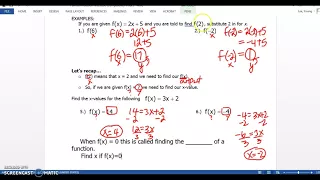 EXAMPLES:
If you are given f(x) = 2x + 5 and you are told to find f(2), substitute 2 in for x.
1.) f(6) f(6) = 2(6)+5 2.) f(-2) f(-2) = 2(-2)+5
x 12+5 x = -4+5
f(6) = 17 f(-2) = 1
x y x y
Let's recap...
means that x = 2 and we need to find our output
So, if we are given f(x) = 2 we need to find our x-value.
Find the x-values for the following f(x) = 3x + 2
5.) f(x) = 14 14 = 3x+2 6.) f(x) = -4 -4 = 3x+2
-2 -2 -2 -2
x=4 12 = 3x -6 = 3x
3 3 3 3
x = -2
When f(x) = 0 this is called finding the ________ of a
function.
Find x if f(x)=0
SCREENCAST-O-MATIC